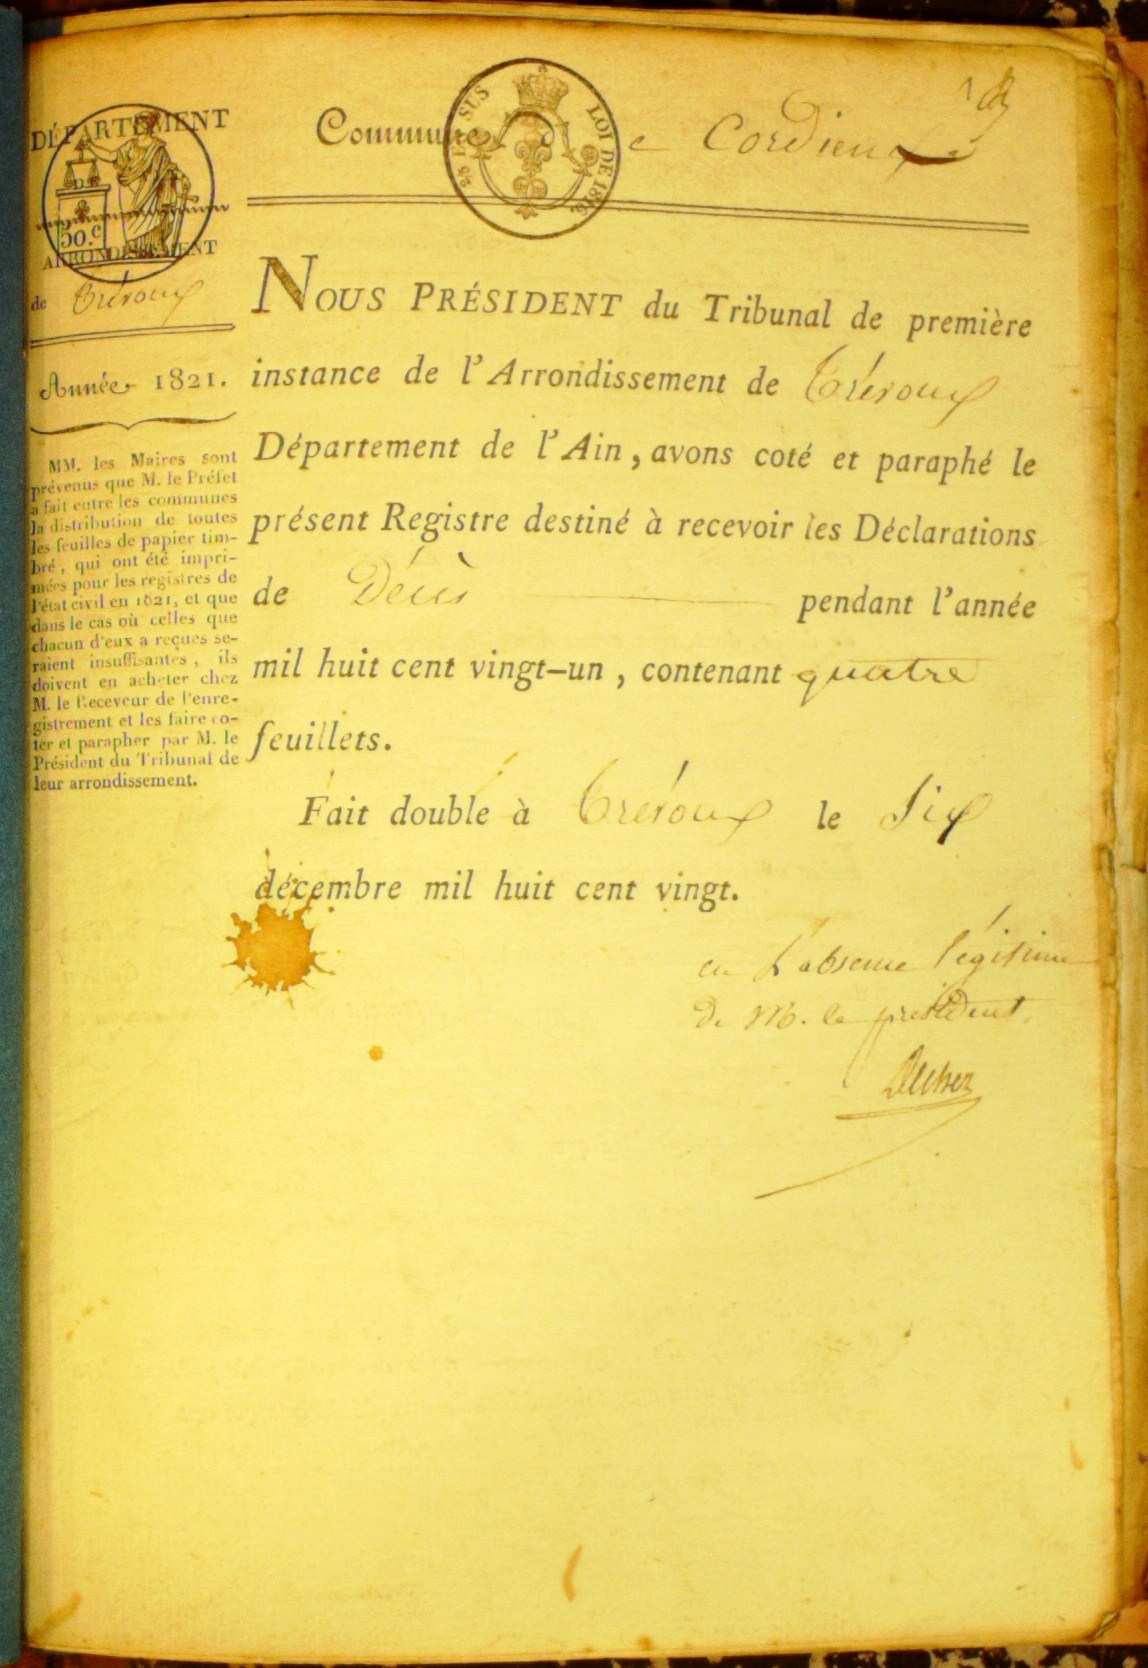 DÉPARTEMENT
DE
50.c
ARRONDISSEMENT
de Trévoux
Année 1821.
MM. les Maires sont
prévenus que M. le Préfet
a fait entre les communes
la distribution de toutes
les feuilles de papier tim-
bré, qui ont été impri-
mées pour les registres de
l'état civil en 1821, et que
dans le cas où celles que
chacun d'eux a reçues se-
raient insuffisantes, ils
doivent en acheter chez
M. le Receveur de l'enre-
gistrement et les faire co-
ter et parapher par M. le
Président du Tribunal de
leur arrondissement.
Commune de Cordieux
SUS
LOI DE 1816.
NOUS PRÉSIDENT du Tribunal de première
instance de l'Arrondissement de Trévoux
Département de l'Ain, avons coté et paraphé le
présent Registre destiné à recevoir les Déclarations
de Décès pendant l'année
mil huit cent vingt-un, contenant quatre
feuillets.
Fait double à Trévoux le Six
décembre mil huit cent vingt.
en L'absence légitime
De M. le président